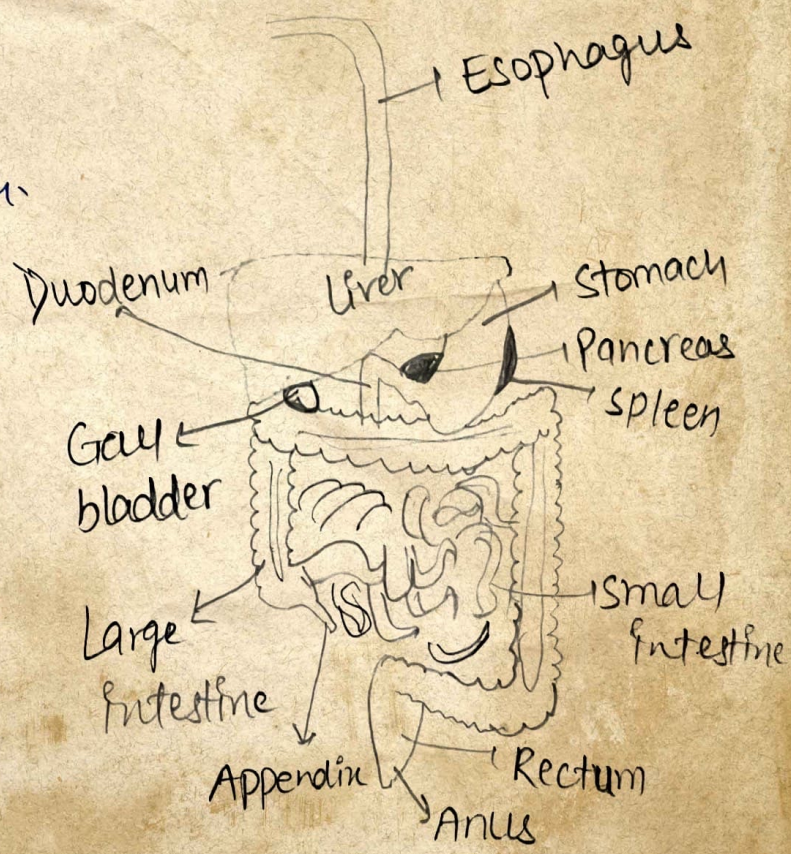 Esophagus
Duodenum
Liver
Stomach
Pancreas
Spleen
Gall
bladder
Small
intestine
Large
intestine
Appendix
Rectum
Anus